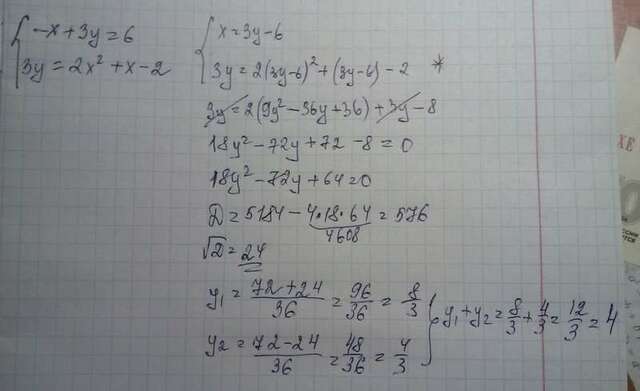 { -x + 3y = 6
3y = 2x² + x - 2
{ x = 3y - 6
3y = 2(3y-6)² + (3y-6) - 2 *
3y = 2(9y² - 36y + 36) + 3y - 8
18y² - 72y + 72 - 8 = 0
18y² - 72y + 64 = 0
D = 5184 - 4·18·64 = 576
4608
√D = 24
y₁ = (72+24)/36 = 96/36 = 8/3
y₂ = (72-24)/36 = 48/36 = 4/3
} y₁ + y₂ = 8/3 + 4/3 = 12/3 = 4